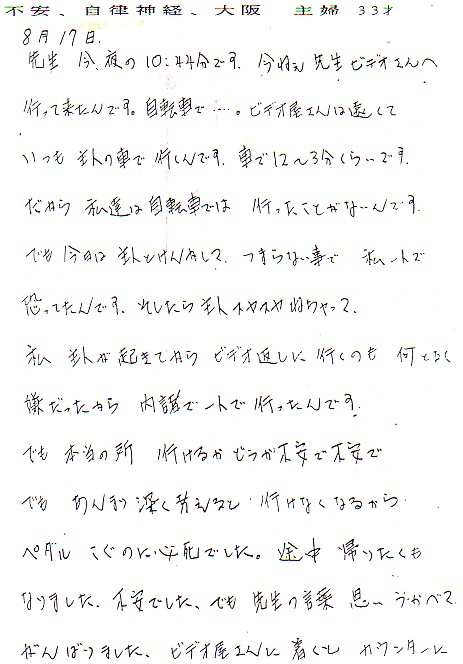 不安、自律神経、大阪　主婦　33才
8月17日.
先生 今 夜の10:44分です. 今ねぇ 先生 ビデオさんへ
行って来たんです。自転車で…。ビデオ屋さんは遠くて
いつも 主人の車で 行くんです. 車で12〜3分くらいです.
だから 私達は自転車では 行ったことがないんです.
でも 今日は 主人とけんかして、つまらない事で 私一人で
怒ってたんです. そしたら 主人 スヤスヤ ねちゃって.
私 主人が起きてから ビデオ返しに 行くのも 何となく
嫌だったから 内諸で一人で 行ったんです.
でも 本当の所 行けるか どうか不安で不安で
でも あんまり 深く考えると 行けなくなるから
ペダル こぐのに必死でした。途中 帰りたくも
なりました. 不安でした、でも 先生の言葉 思い うかべて
がんばりました、ビデオ屋さんに 着くと カウンターに